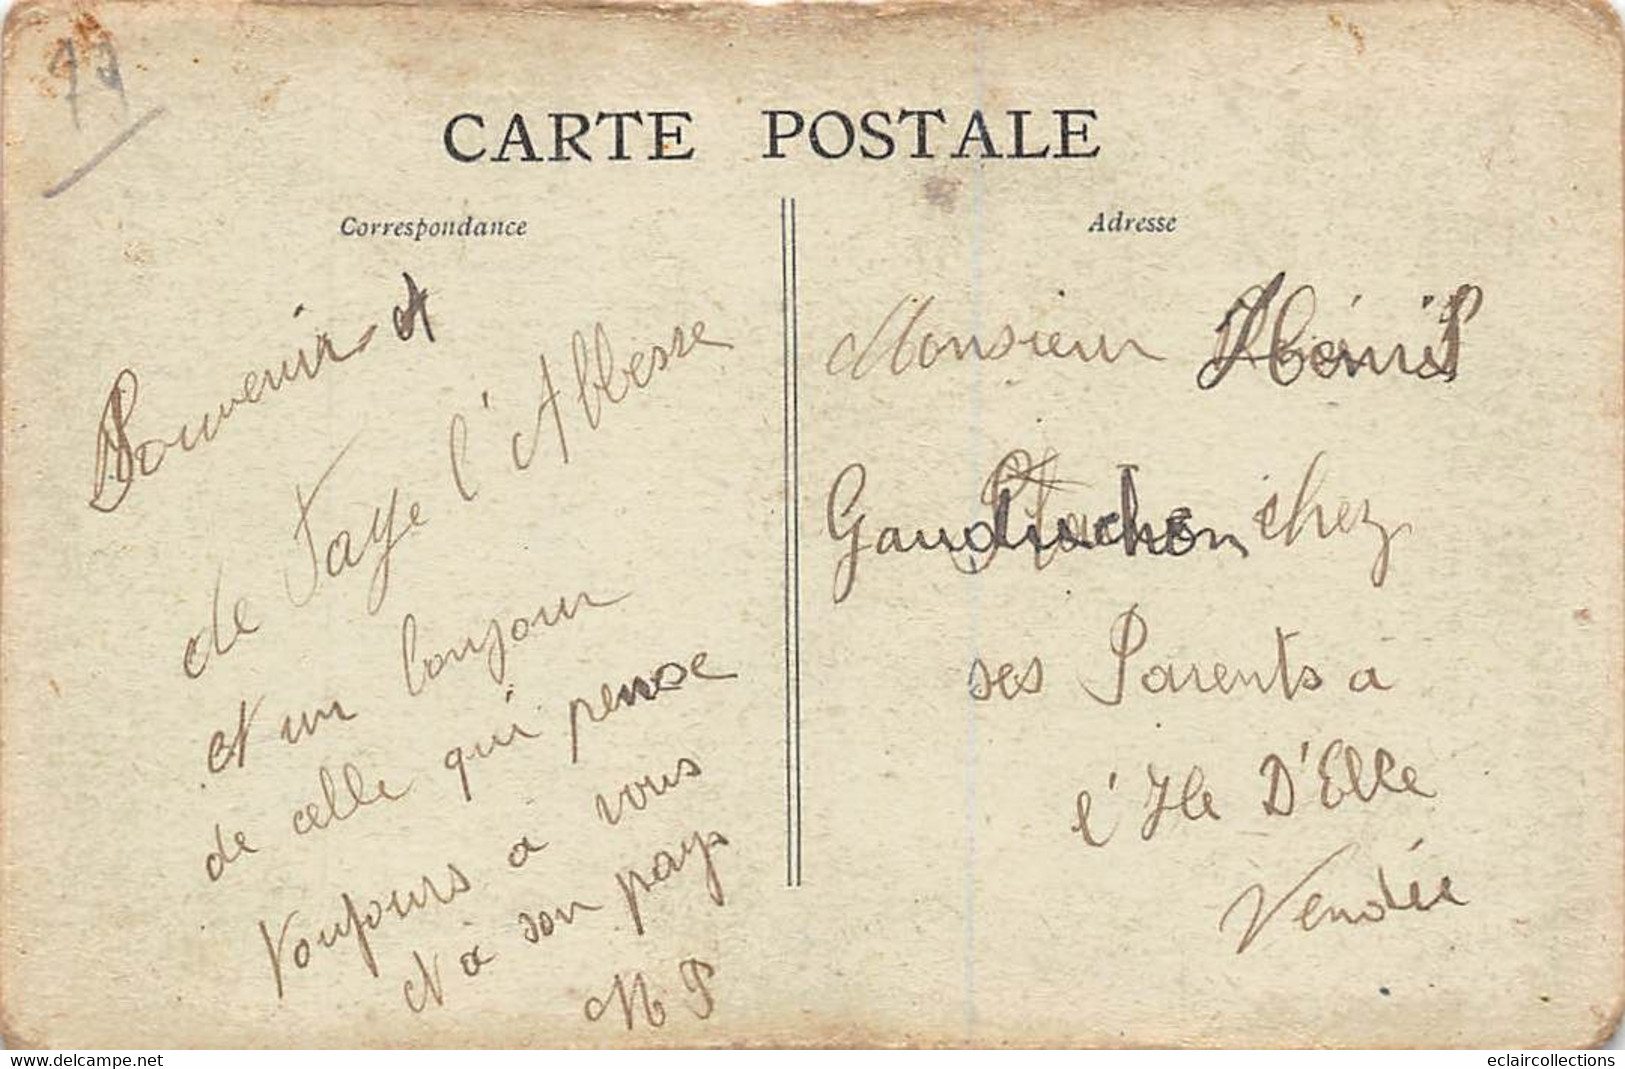 79
CARTE POSTALE
Correspondance
Souvenir et
de Faye l'Abbesse
et un bonjour
de celle qui pense
Toujours a vous
et a son pays
M P
Adresse
Monsieur
Gauduchon chez
ses Parents a
l'Ile D'Elle
Vendée
www.delcampe.net
eclaircollections